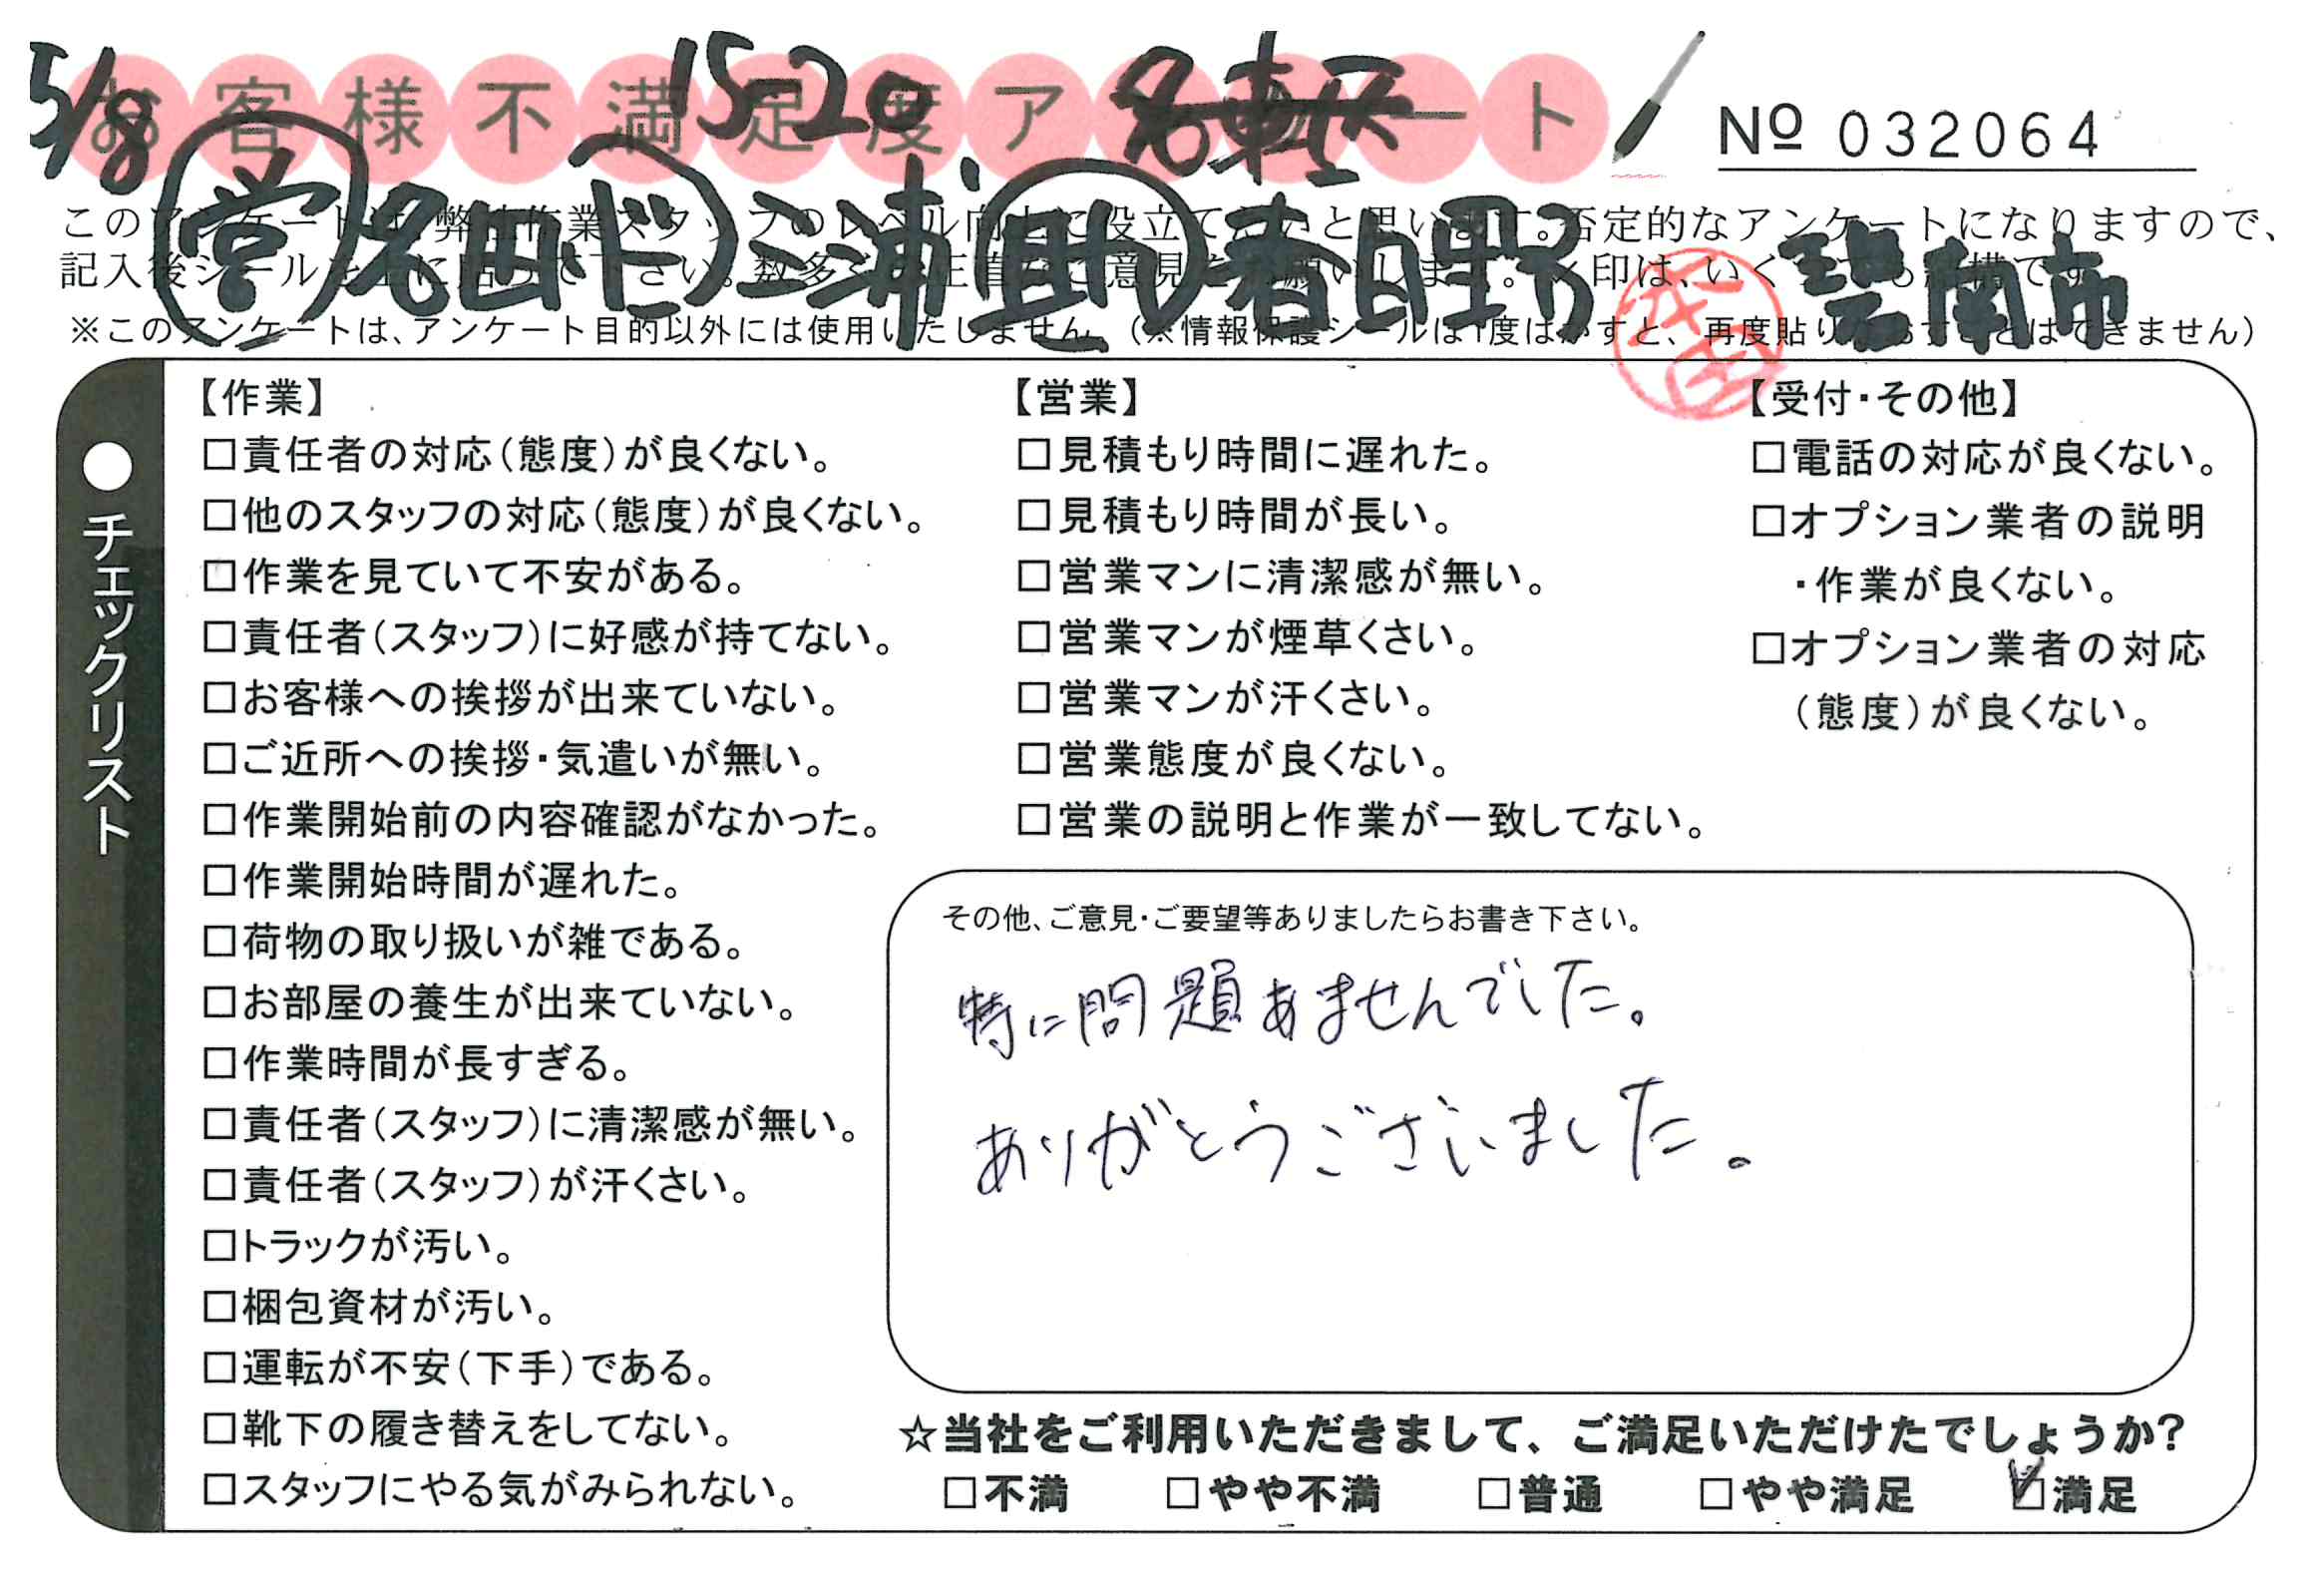 お客様不満足度アンケート
5/8 15-20 名軽
Nº 032064
営 名四 ド 三浦 助 春日野 碧南市
このアンケートは、弊社作業スタッフのレベル向上に役立てたいと思います。否定的なアンケートになりますので、
記入後シールを上に貼って下さい。数多くの正直なご意見をお願いします。✓印は、いくつでも結構です。
※このアンケートは、アンケート目的以外には使用いたしません。(※情報保護シールは1度はがすと、再度貼りなおすことはできません)
●チェックリスト
【作業】
□責任者の対応(態度)が良くない。
□他のスタッフの対応(態度)が良くない。
□作業を見ていて不安がある。
□責任者(スタッフ)に好感が持てない。
□お客様への挨拶が出来ていない。
□ご近所への挨拶・気遣いが無い。
□作業開始前の内容確認がなかった。
□作業開始時間が遅れた。
□荷物の取り扱いが雑である。
□お部屋の養生が出来ていない。
□作業時間が長すぎる。
□責任者(スタッフ)に清潔感が無い。
□責任者(スタッフ)が汗くさい。
□トラックが汚い。
□梱包資材が汚い。
□運転が不安(下手)である。
□靴下の履き替えをしてない。
□スタッフにやる気がみられない。
【営業】
□見積もり時間に遅れた。
□見積もり時間が長い。
□営業マンに清潔感が無い。
□営業マンが煙草くさい。
□営業マンが汗くさい。
□営業態度が良くない。
□営業の説明と作業が一致してない。
【受付・その他】
□電話の対応が良くない。
□オプション業者の説明
・作業が良くない。
□オプション業者の対応
(態度)が良くない。
その他、ご意見・ご要望等ありましたらお書き下さい。
特に問題あませんでした。
ありがとうございました。
☆当社をご利用いただきまして、ご満足いただけたでしょうか?
□不満 □やや不満 □普通 □やや満足 ☑満足